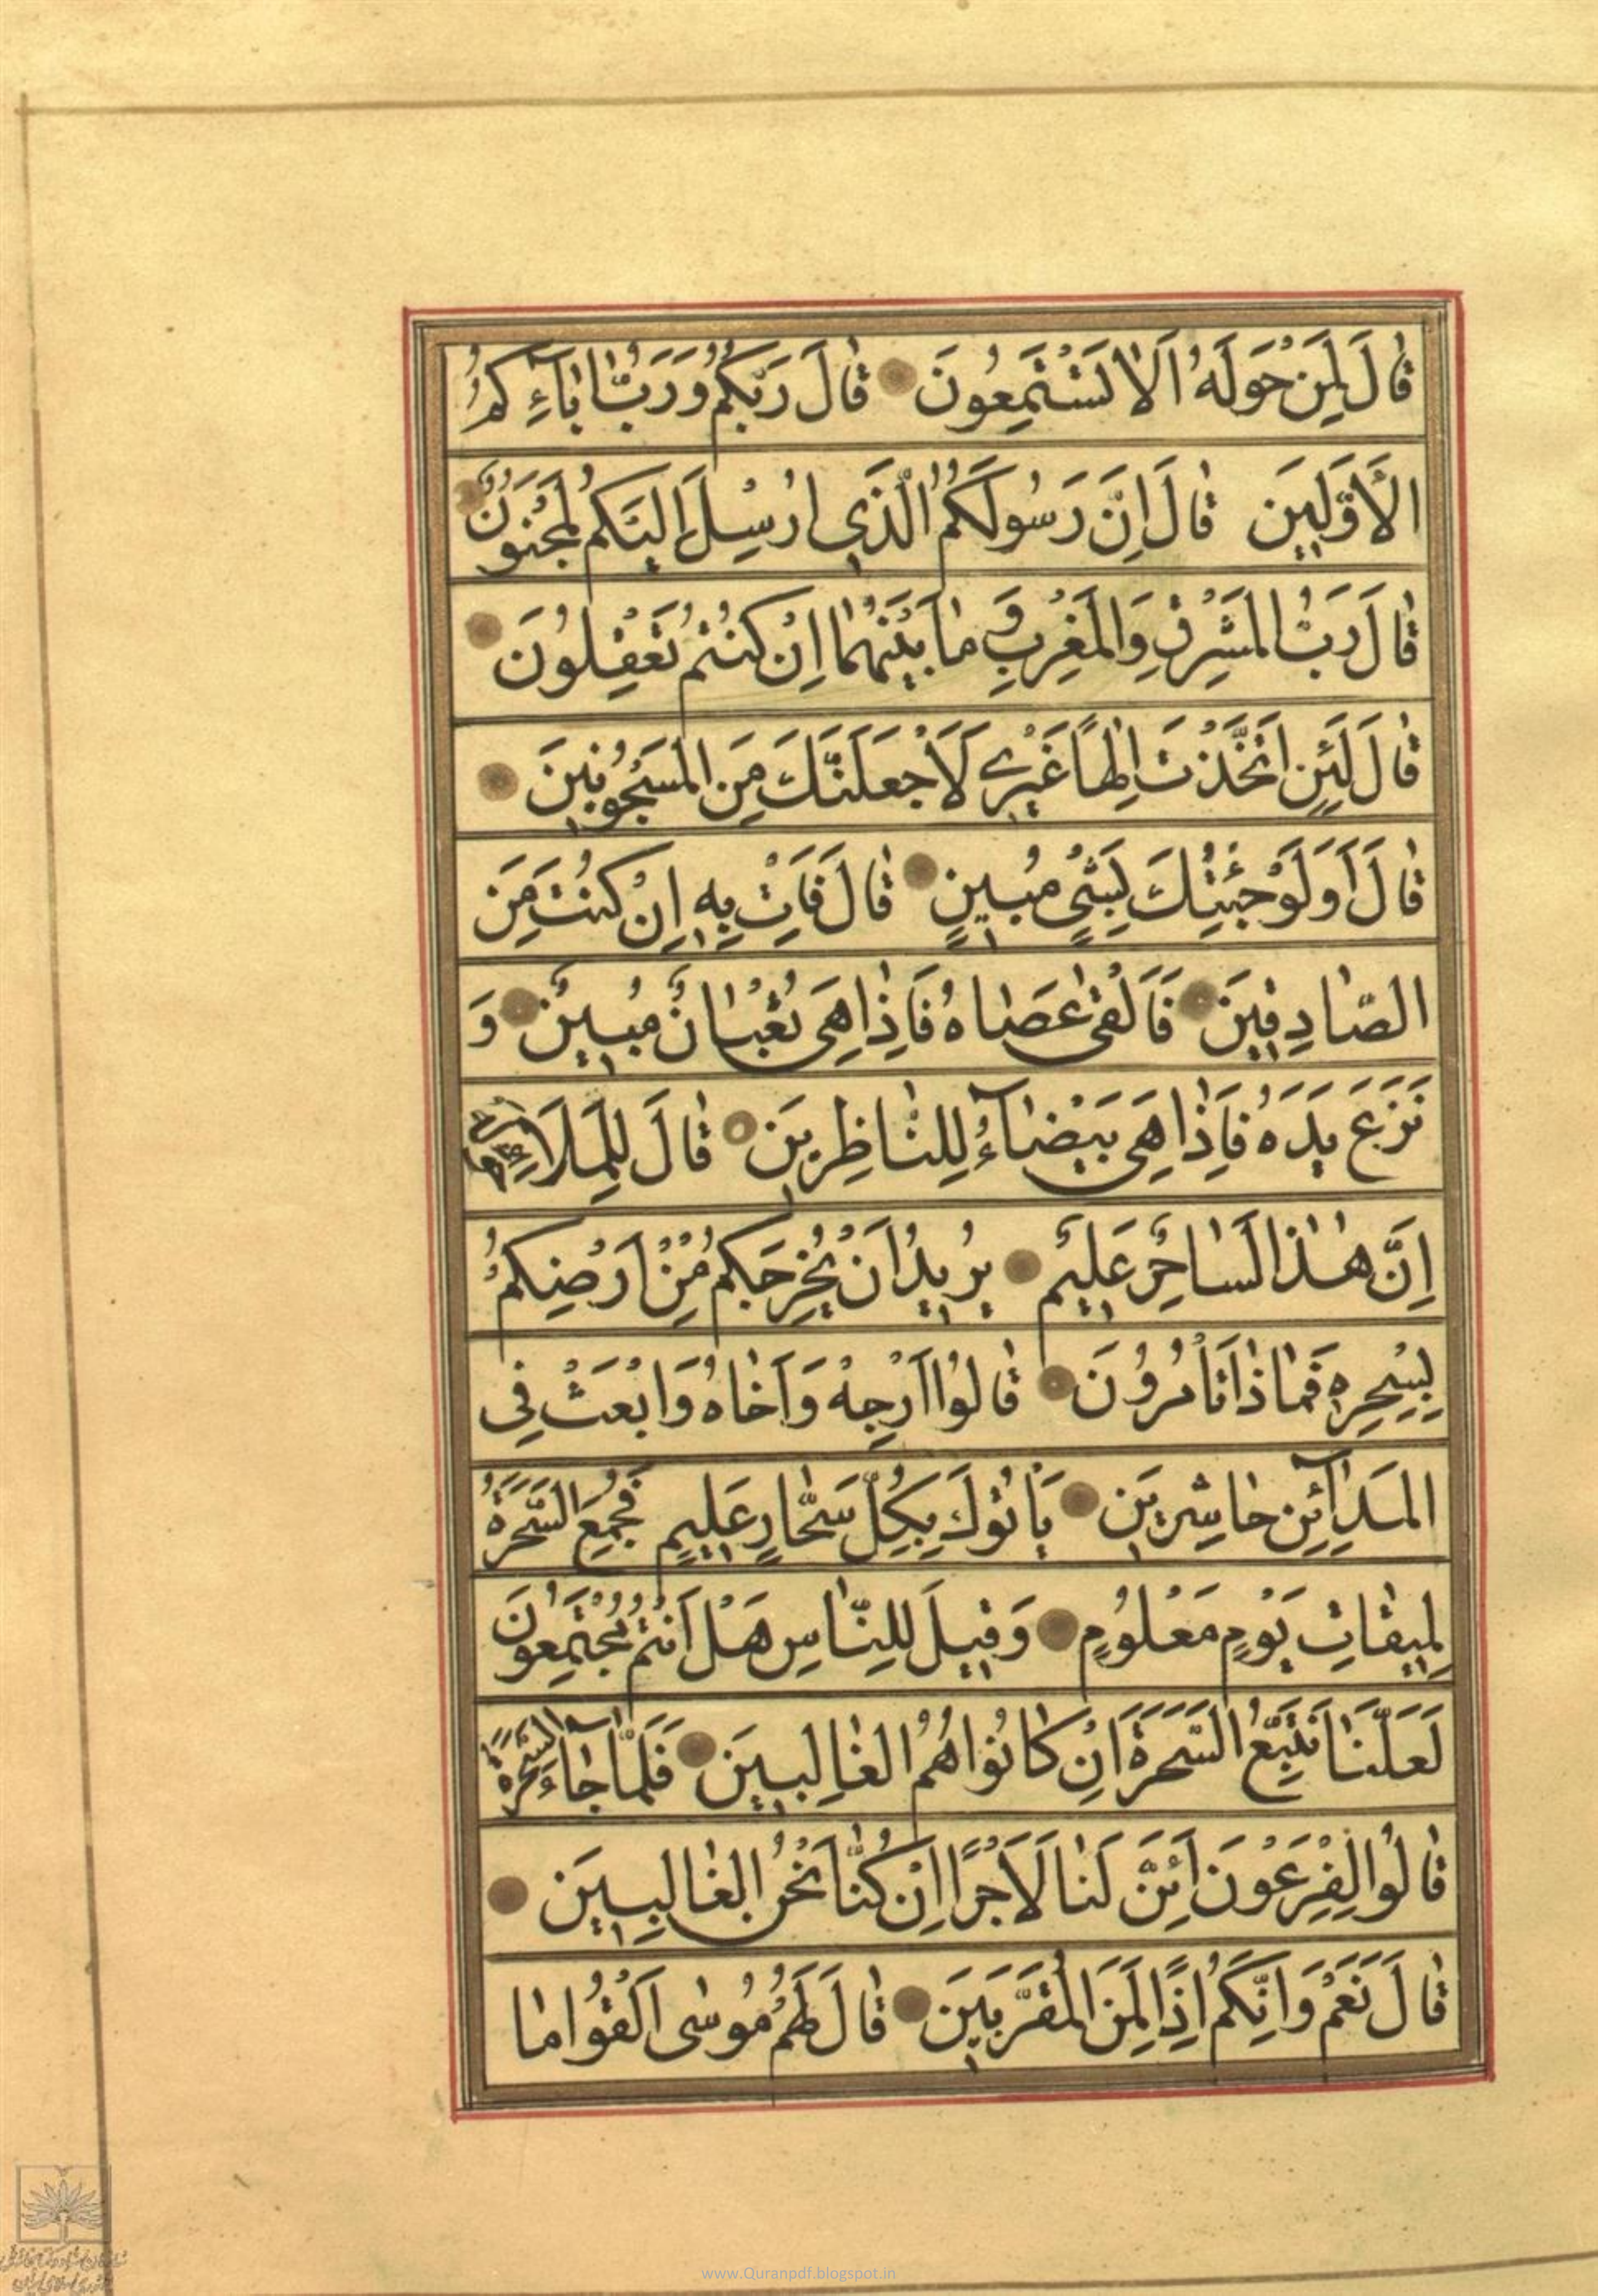 قَالَ لِمَنْ حَوْلَهُ اَلَا تَسْتَمِعُونَ قَالَ رَبُّكُمْ وَرَبُّ اٰبَآءِكُمُ
الْاَوَّلِينَ قَالَ اِنَّ رَسُولَكُمُ الَّذِي اُرْسِلَ اِلَيْكُمْ لَمَجْنُونٌ
قَالَ رَبُّ الْمَشْرِقِ وَالْمَغْرِبِ وَمَا بَيْنَهُمَا اِنْ كُنْتُمْ تَعْقِلُونَ
قَالَ لَئِنِ اتَّخَذْتَ اِلٰهًا غَيْرِي لَاَجْعَلَنَّكَ مِنَ الْمَسْجُونِينَ
قَالَ اَوَلَوْ جِئْتُكَ بِشَيْءٍ مُبِينٍ قَالَ فَأْتِ بِهِ اِنْ كُنْتَ مِنَ
الصَّادِقِينَ فَاَلْقٰى عَصَاهُ فَاِذَا هِيَ ثُعْبَانٌ مُبِينٌ وَ
نَزَعَ يَدَهُ فَاِذَا هِيَ بَيْضَآءُ لِلنَّاظِرِينَ قَالَ لِلْمَلَاِ حَوْلَهُ
اِنَّ هٰذَا لَسَاحِرٌ عَلِيمٌ يُرِيدُ اَنْ يُخْرِجَكُمْ مِنْ اَرْضِكُمْ
بِسِحْرِهِ فَمَاذَا تَأْمُرُونَ قَالُوا اَرْجِهْ وَاَخَاهُ وَابْعَثْ فِي
الْمَدَآئِنِ حَاشِرِينَ يَأْتُوكَ بِكُلِّ سَحَّارٍ عَلِيمٍ فَجُمِعَ السَّحَرَةُ
لِمِيقَاتِ يَوْمٍ مَعْلُومٍ وَقِيلَ لِلنَّاسِ هَلْ اَنْتُمْ مُجْتَمِعُونَ
لَعَلَّنَا نَتَّبِعُ السَّحَرَةَ اِنْ كَانُوا هُمُ الْغَالِبِينَ فَلَمَّا جَآءَ السَّحَرَةُ
قَالُوا لِفِرْعَوْنَ اَئِنَّ لَنَا لَاَجْرًا اِنْ كُنَّا نَحْنُ الْغَالِبِينَ
قَالَ نَعَمْ وَاِنَّكُمْ اِذًا لَمِنَ الْمُقَرَّبِينَ قَالَ لَهُمْ مُوسٰى اَلْقُوا مَا
www.Quranpdf.blogspot.in